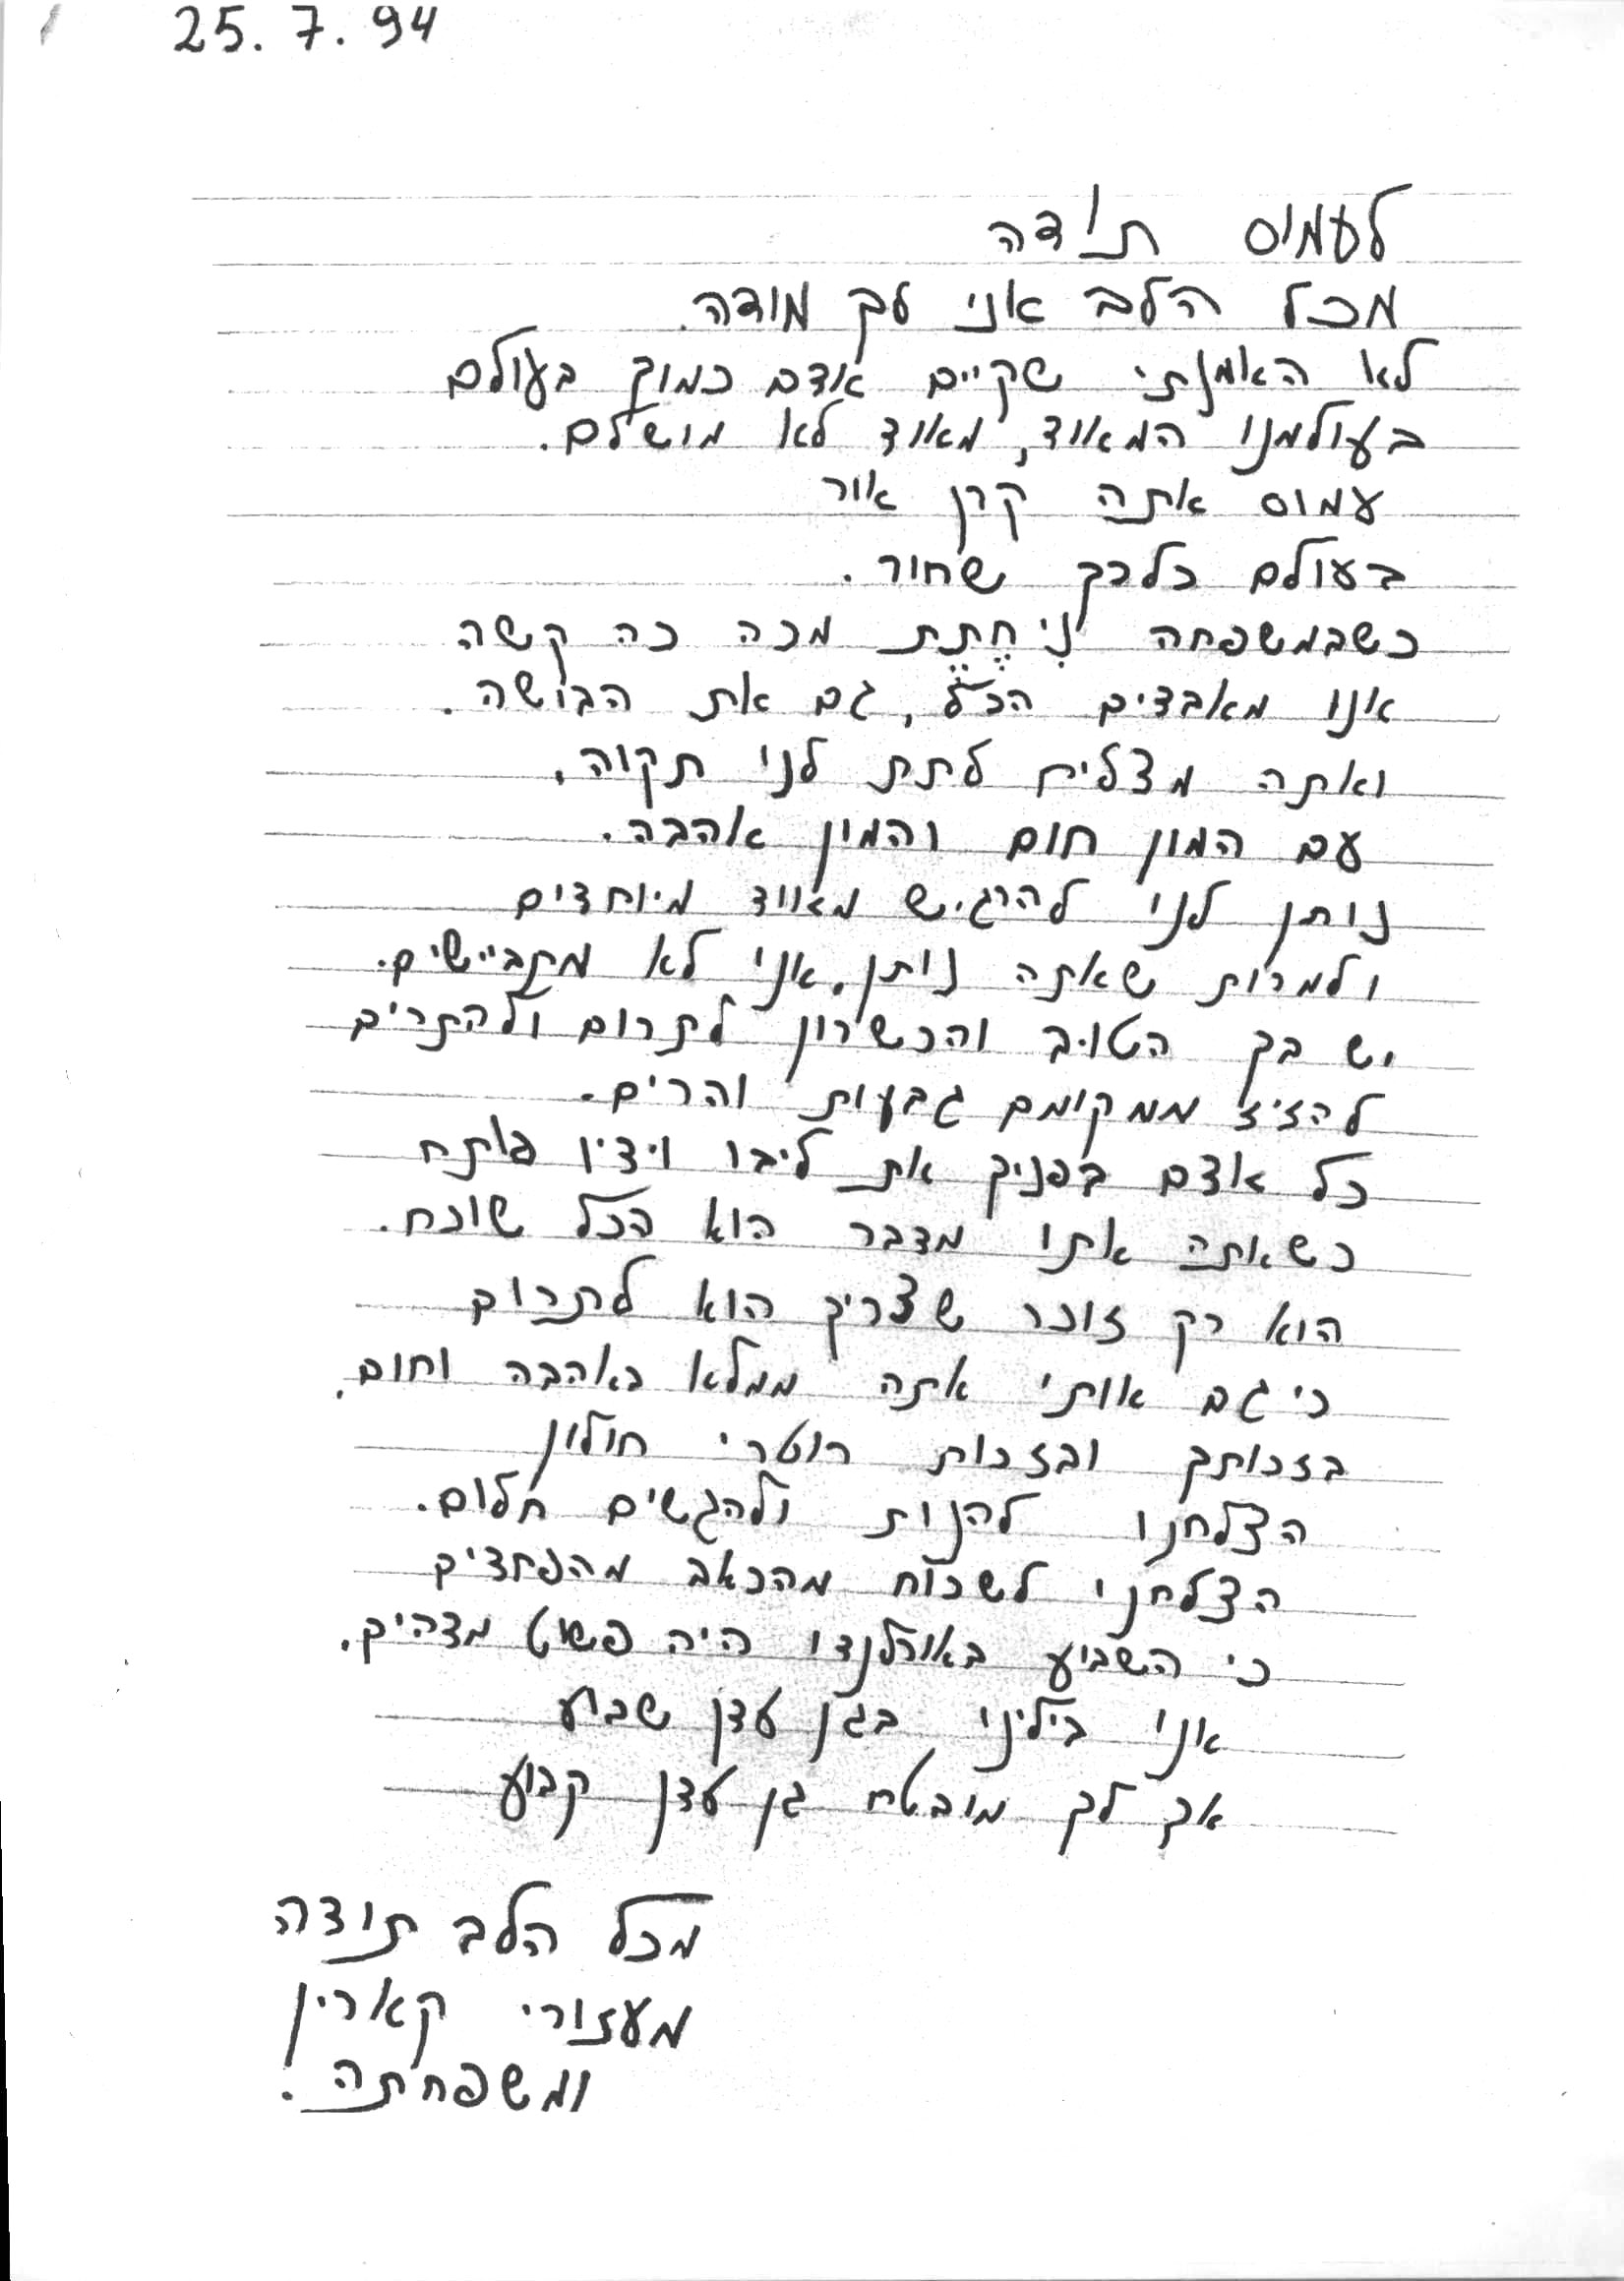 25.7.94
לעמוס תודה
מכל הלב אני לך מודה.
לא האמנתי שקיים אדם כמוך בעולם
בעולמנו המאוד, מאוד לא מושלם.
עמוס אתה קרן אור
בעולם כלכך שחור.
כשבמשפחה נִיחֶתֶת מכה כה קשה
אנו מאבדים הכל, גם את הבושה.
ואתה מצליח לתת לנו תקוה,
עם המון חום והמון אהבה.
נותן לנו להרגיש מאוד מיוחדים
ולמרות שאתה נותן, אנו לא מתביישים.
יש בך הטוב והכשרון לתרום ולהתרים
להזיז ממקומם גבעות והרים.
כל אדם בפניך את ליבו וידיו פותח
כשאתה אתו מדבר הוא הכל שוכח.
הוא רק זוכר שצריך הוא לתרום
כי גם אותו אתה ממלא באהבה וחום.
בזכותך ובזכות רוטרי חולון
הצלחנו להנות ולהגשים חלום.
הצלחנו לשכוח מהכאב מהפחדים
כי השבוע באורלנדו היה פשוט מדהים.
אנו בילינו בגן עדן שבוע
אך לך מובטח גן עדן קבוע
מכל הלב תודה
מעזורי קארין
ומשפחתה.